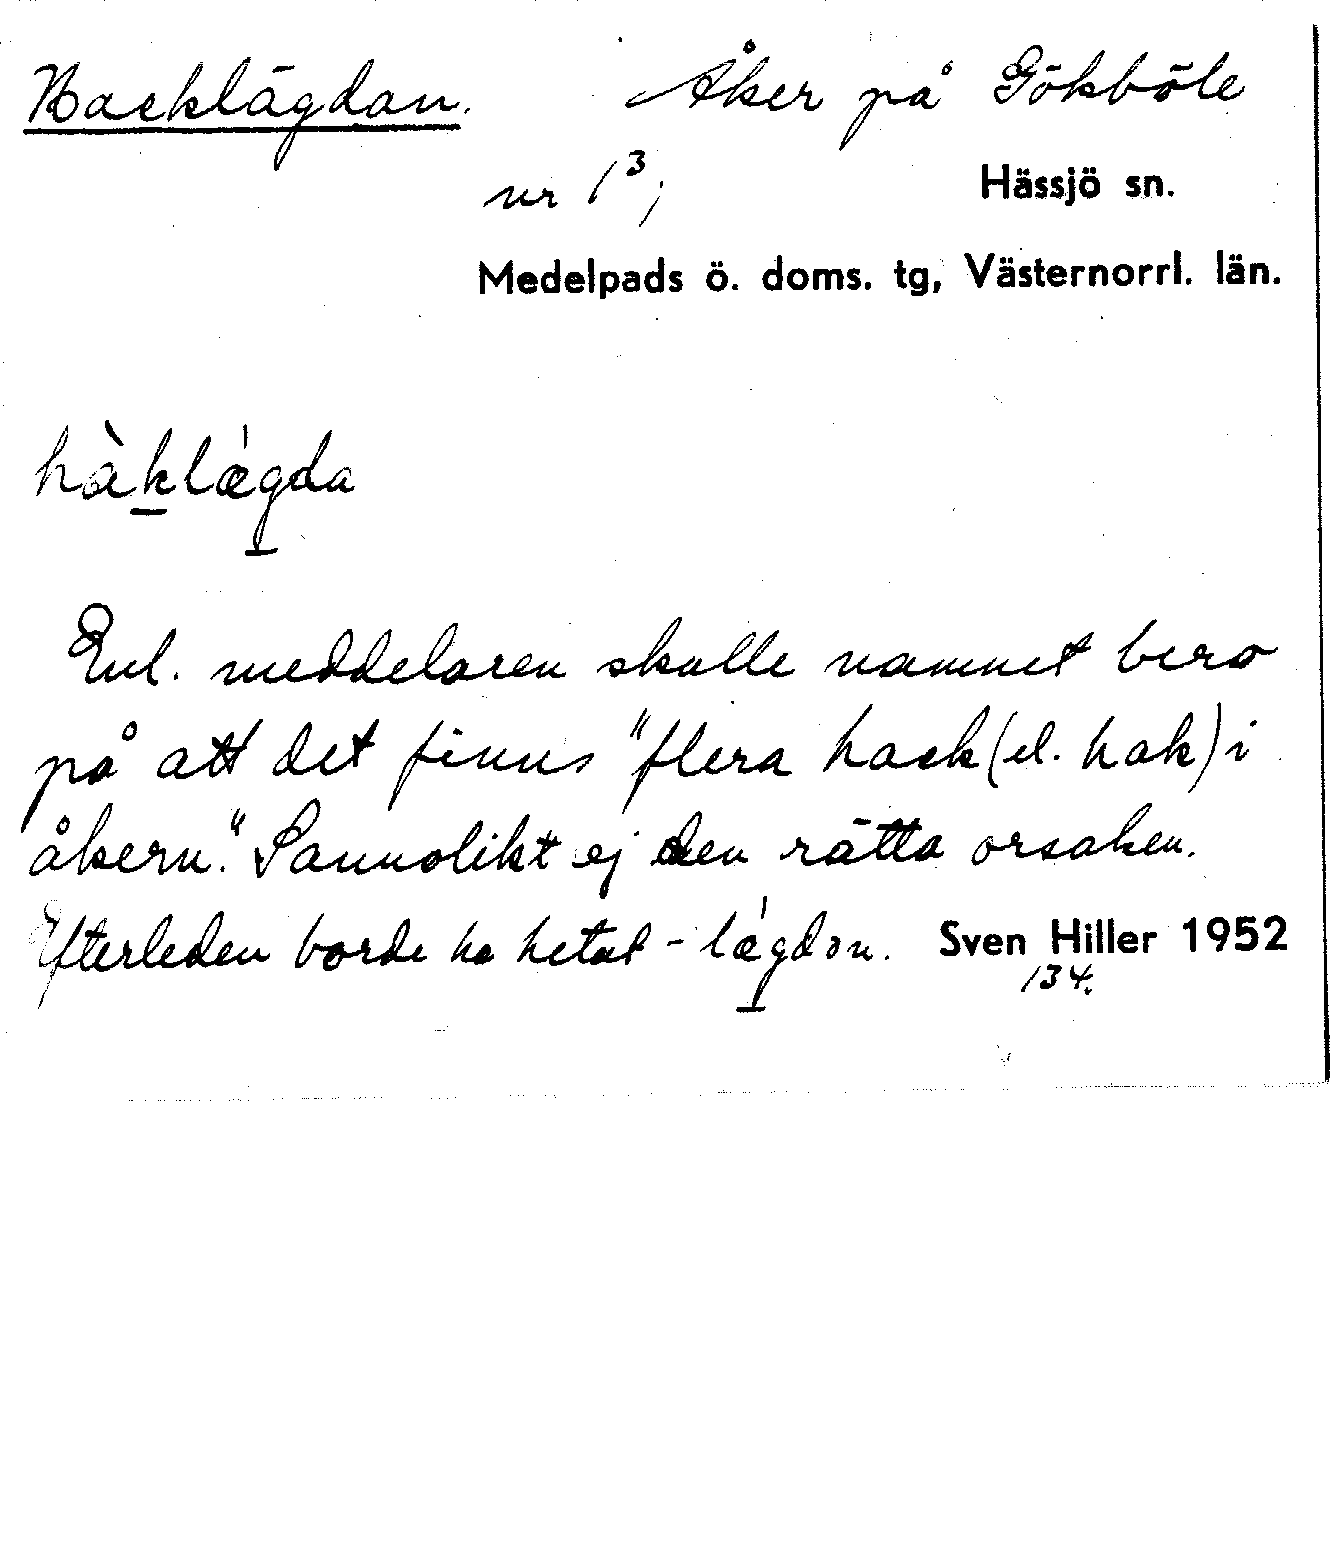 Hacklägdan. Åker på Gökböle
nr 1³; Hässjö sn.
Medelpads ö. doms. tg, Västernorrl. län.
hàklǽgda
Enl. meddelaren skulle namnet bero
på att det finns "flera hack (el. hak) i
åkern." Sannolikt ej den rätta orsaken.
Efterleden borde ha hetat -lǽgdon. Sven Hiller 1952
134.